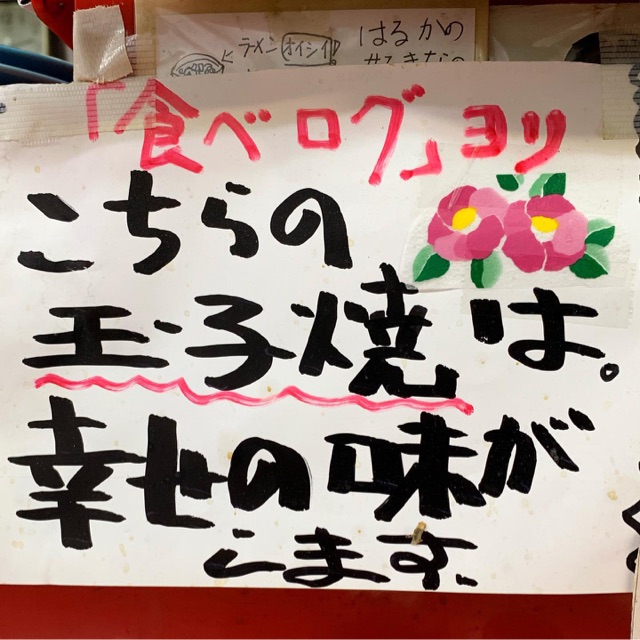 ラーメン オイシイ!
はるかの
「食べログ」ヨリ
こちらの
玉子焼は。
幸せの味が
します。